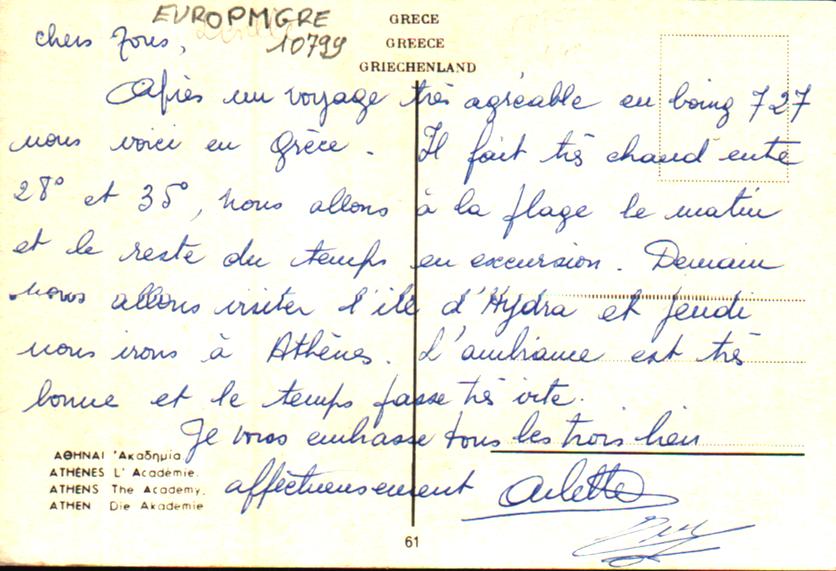 EUROPMGRE
10799
GRECE
GREECE
GRIECHENLAND
chers tous,
Après un voyage très agréable en boing 727
nous voici en Grèce. Il fait très chaud entre
28° et 35°, nous allons à la plage le matin
et le reste du temps en excursion. Demain
nous allons visiter l'ile d'Hydra et jeudi
nous irons à Athènes. L'ambiance est très
bonne et le temps passe très vite.
Je vous embrasse tous les trois bien
affectueusement Arlette
ΑΘΗΝΑΙ 'Ακαδημία
ATHÈNES L' Académie.
ATHENS The Academy.
ATHEN Die Akademie
61